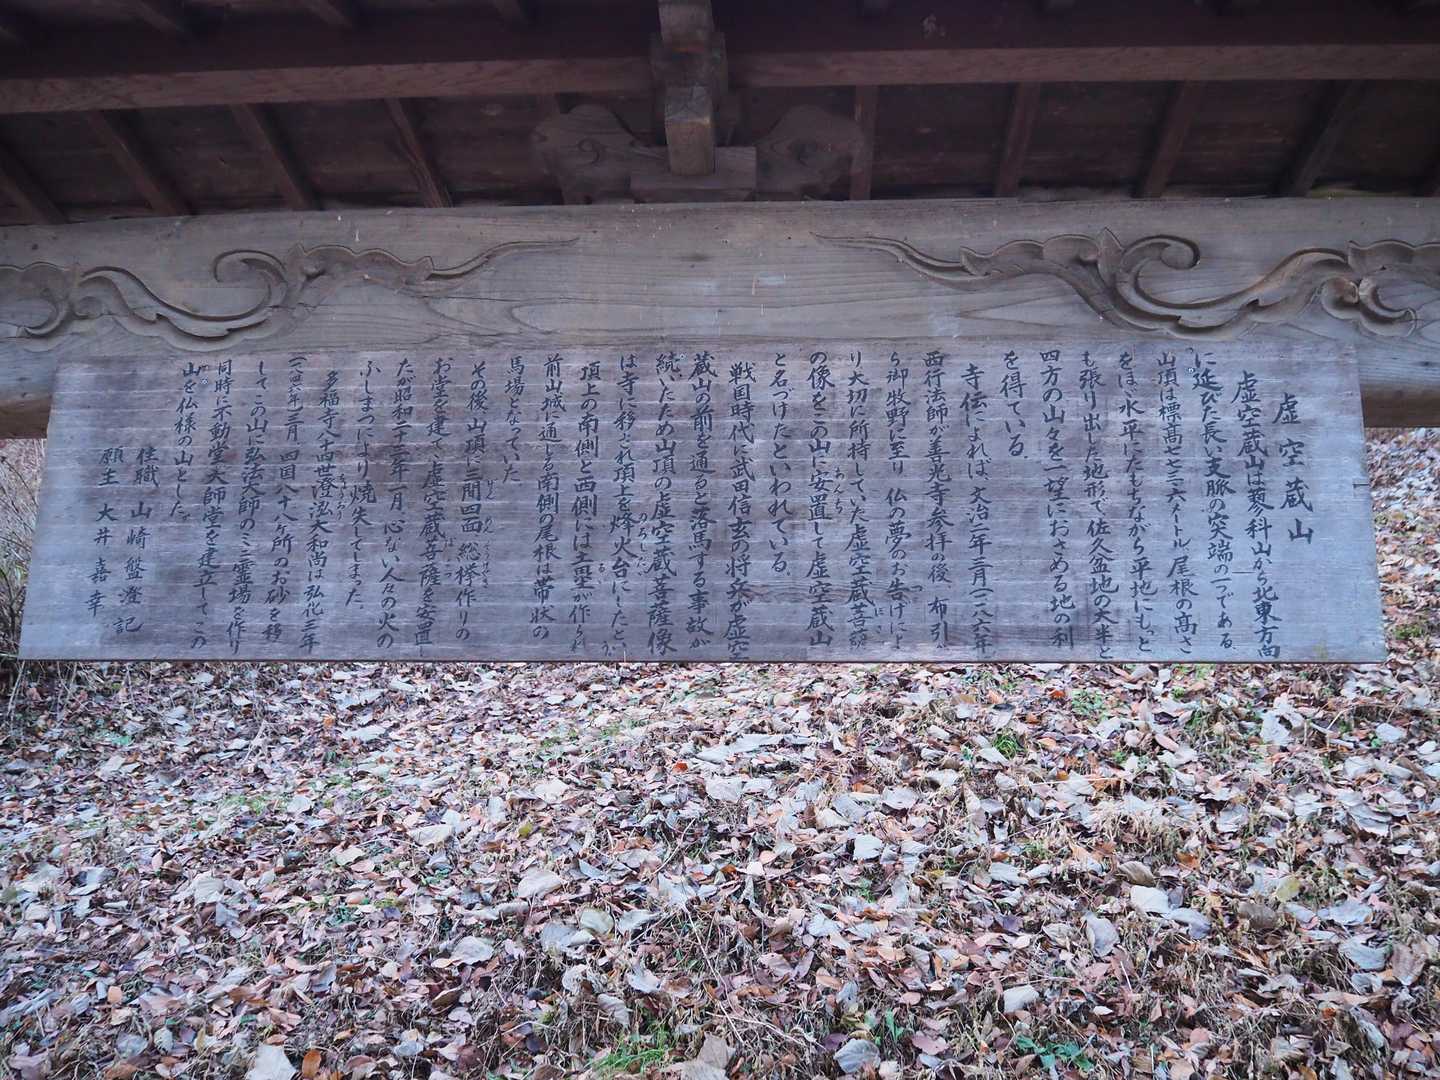 虚空蔵山
虚空蔵山は蓼科山から北東方向
に延びた長い支脈の突端の一つである。
山頂は標高七七三・六メートル 尾根の高さ
をほゞ水平にたもちながら平地にもっと
も張り出した地形で佐久盆地の大半と
四方の山々を一望におさめる地の利
を得ている。
寺伝によれば、文治二年三月(一一八六年)
西行法師が善光寺参拝の後、布引か
ら御牧野に至り 仏の夢のお告げによ
り大切に所持していた虚空蔵菩薩
の像をこの山に安置して虚空蔵山
と名づけたといわれている。
戦国時代に武田信玄の将兵が虚空
蔵山の前を通ると落馬する事故が
続いたため山頂の虚空蔵菩薩像
は寺に移され頂上を烽火台にしたという。
頂上の南側と西側には土塁が作られ
前山城に通じる南側の尾根は帯状の
馬場となっていた
その後、山頂に三間四面、総欅作りの
お堂を建て、虚空蔵菩薩を安置し
たが昭和二十三年一月、心ない人々の火の
ふしまつにより焼失してしまった。
多福寺八十四世澄泓大和尚は弘化三年
(一八四六年)三月、四国八十八ヶ所のお砂を移
してこの山に弘法大師のミニ霊場を作り
同時に不動堂大師堂を建立して、この
山を仏様の山とした。
住職 山崎盤澄 記
願主 大井嘉幸